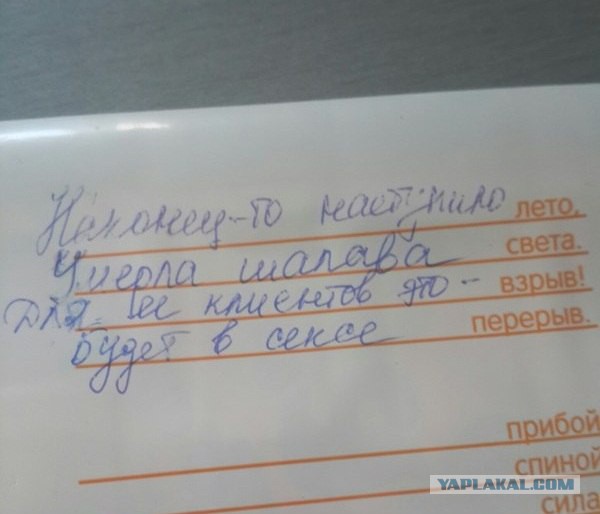 Наконец-то наступило лето,
Умерла шалава света.
Для ее клиентов это - взрыв!
Будет в сексе перерыв.
прибой
спиной
сила
YAPLAKAL.COM